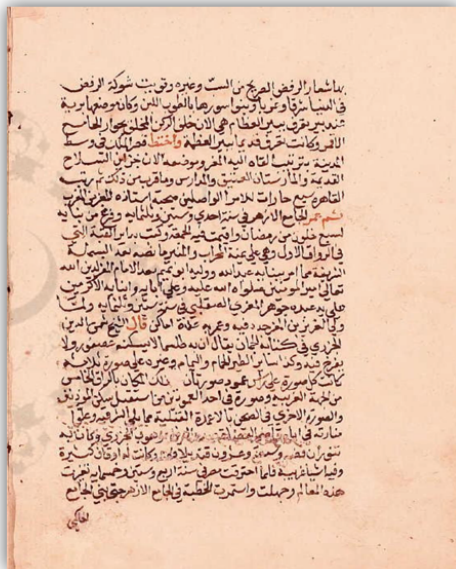 بها شعار الرفض الصريح من السب وغيره وقويت شوكة الرفض
في الدنيا شرقا وغربا وبنوا سورها بالطوب اللبن وكان موضعها برية
عند بير تعرف ببير العظام هي الان خلف الركن المخلق بجوار الجامع
الاقمر وكانت تعرف قديما ببير العظمة واختط قصر الملك في وسط
المدينة بترتيب القاه اليه المعز وموضعه الان خزاين السلاح
القديمة والمارستان العتيق والمدارس وما قرب من ذلك ثم رتب
القاهرة حارات للامرا الواصلين صحبة استاذه المعز من الغرب
ثم عمر الجامع الازهر في سنة احدى وستين وثلثمايه وفرغ من بنايه
لسبع خلون من رمضان واقيمت فيه الجمعة وكتب بداير القبة التي
في الرواق الاول وهي على يمنة المحراب والمنبر ما نصه بعد البسملة
الشريفة مما امر ببنايه عبد الله ووليه ابو تميم معد الامام المعز لدين الله
تعالى امير المومنين صلوات الله عليه وعلى ابايه وابنايه الاكرمين
على يد عبده جوهر المغربي الصقلبي في سنة ستين وثلثمايه ولما
ولي العزيز بن المعز جدد فيه وعمر به عدة اماكن قال الشيخ شمس الدين
الجزري في كتابه الجمان يقال ان به طلسما لا يسكنه عصفور ولا
يفرخ فيه وكذا ساير الطير الحمام واليمام وغيره على صورة
كل صورة على راس عمود صورتان ذلك المكان بالرواق الخامس
من الجهة الغربية وصورة في احد العمودين من استقبل سدة الموذنين
والصورة الاخرى في الصحن بالاعمدة القبلية مما يلي الشرقية وعلوا
منارته في ايام
تنوران فضه وسبعة وعشرون قنديلا وكانت له اوقاف كثيرة
وفيه اشيا غريبة فلما احترقت مصر في سنة اربع وستين وخمسماية تغيرت
هذه المعالم وجهلت واستمرت الخطبة في الجامع الازهر حتى بني الجامع
الحاكمي